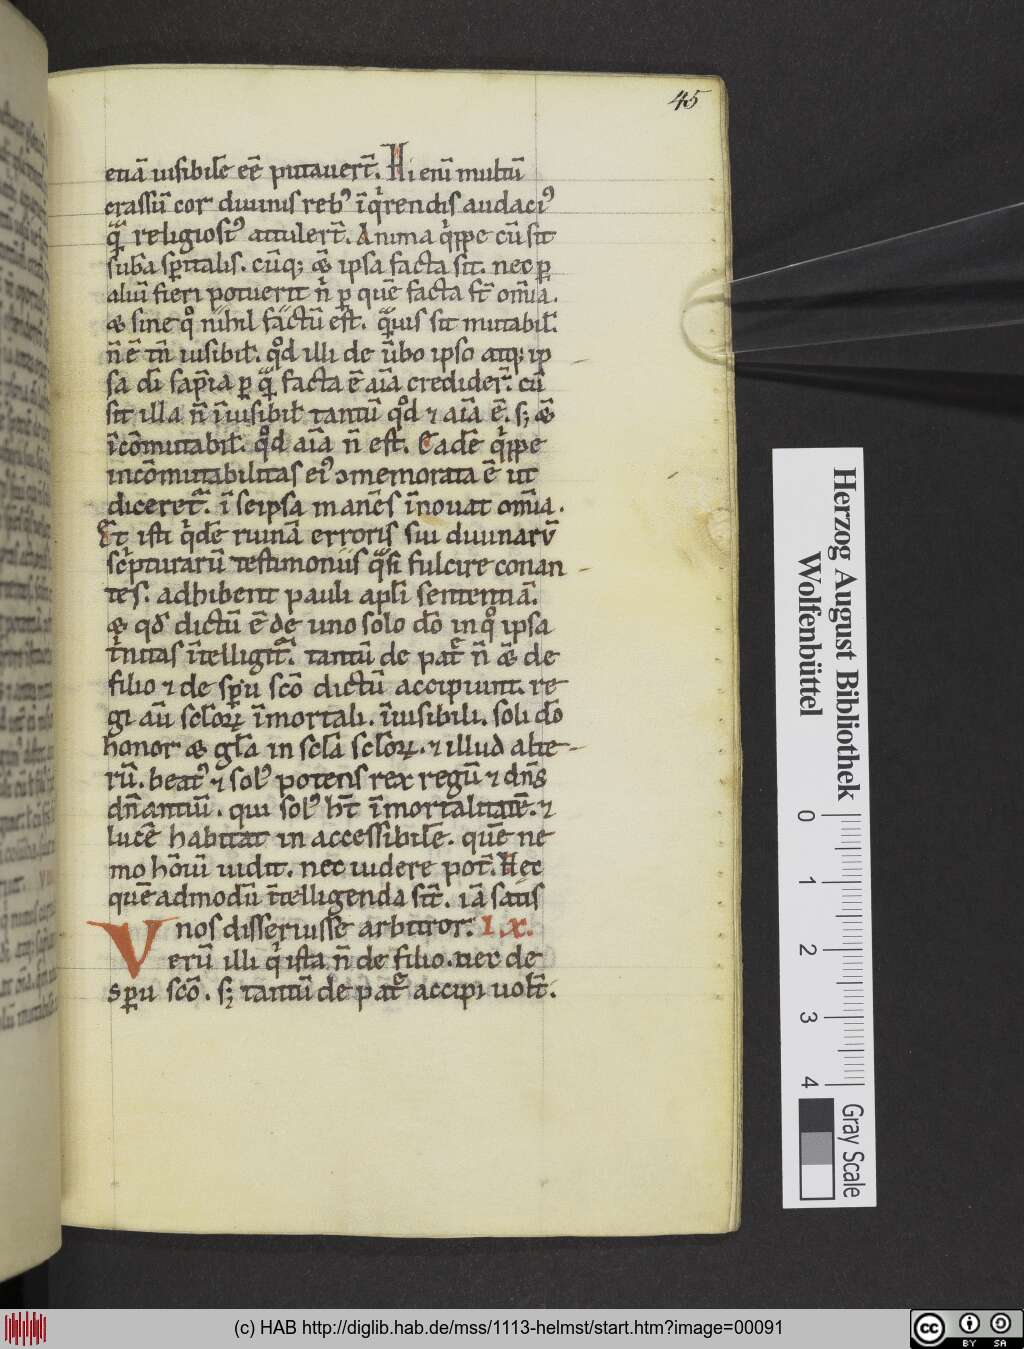 45
etiā uisibilē eē putauer̄t. Hi eni᷑ multū
crassū cor diuinis reb᷒ i᷑q̇rendis audaci᷒
quā religiosi᷒ attuler̄t. Anima q̇ppe cū sit
sub̄a sp̄italis. cūq; & ipsa facta sit. nec ꝑ
aliū fieri potuerit n̄ ꝑ quē facta st̄ om̄ia.
& sine qͦ nihil factū est. quāuis sit mutabil̄.
n̄ ē tn̄ uisibil̄. qͦd illi de u̇bo ipso atq; ip
sa di᷑ sap̄ia ꝑ quā facta ē aīa credider̄. cū
sit illa n̄ i᷑uisibil̄ tantū qͦd ⁊ aīa ē. s; &
i᷑cōmutabil̄. qͦd aīa n̄ est. Eadē q̇ppe
incōmutabilitas ei᷒ ↄmemorata ē ut
diceret᷑. i᷑ seipsa manēs i᷑nouat om̄ia.
Et isti q̇dē ruinā erroris sui diuinarū
sc̄pturarū testimoniis qᵃsi fulcire conan
tes. adhibent pauli apl̄i sententiā.
& qd̄ dictū ē de uno solo dō in qͦ ipsa
ṫnitas i᷑telligit᷑. tantū de patre n̄ & de
filio ⁊ de sp̄u scō dictū accipiunt. re
gi au᷑ scl̄oꝝ i᷑mortali. i᷑uisibili. soli dō
honor & gl̄a in scl̄a scl̄oꝝ. ⁊ illud alte
rū. beat᷒ ⁊ sol᷒ potens rex regū ⁊ dn̄s
dn̄antiū. qui sol᷒ h̄t i᷑mortalitatē. ⁊
lucē habitat in accessibilē. quē ne
mo hōi᷑u uidit. nec uidere pot̄. Hec
quē admodū i᷑telligenda sīt. iā satis
nos disseruisse arbitror. IX.
Verū illi q̇ ista n̄ de filio. nec de
sp̄u scō. s; tantū de patre accipi uolt̄.
Herzog August Bibliothek
Wolfenbüttel
0 1 2 3 4
Gray Scale
(c) HAB http://diglib.hab.de/mss/1113-helmst/start.htm?image=00091
cc BY SA